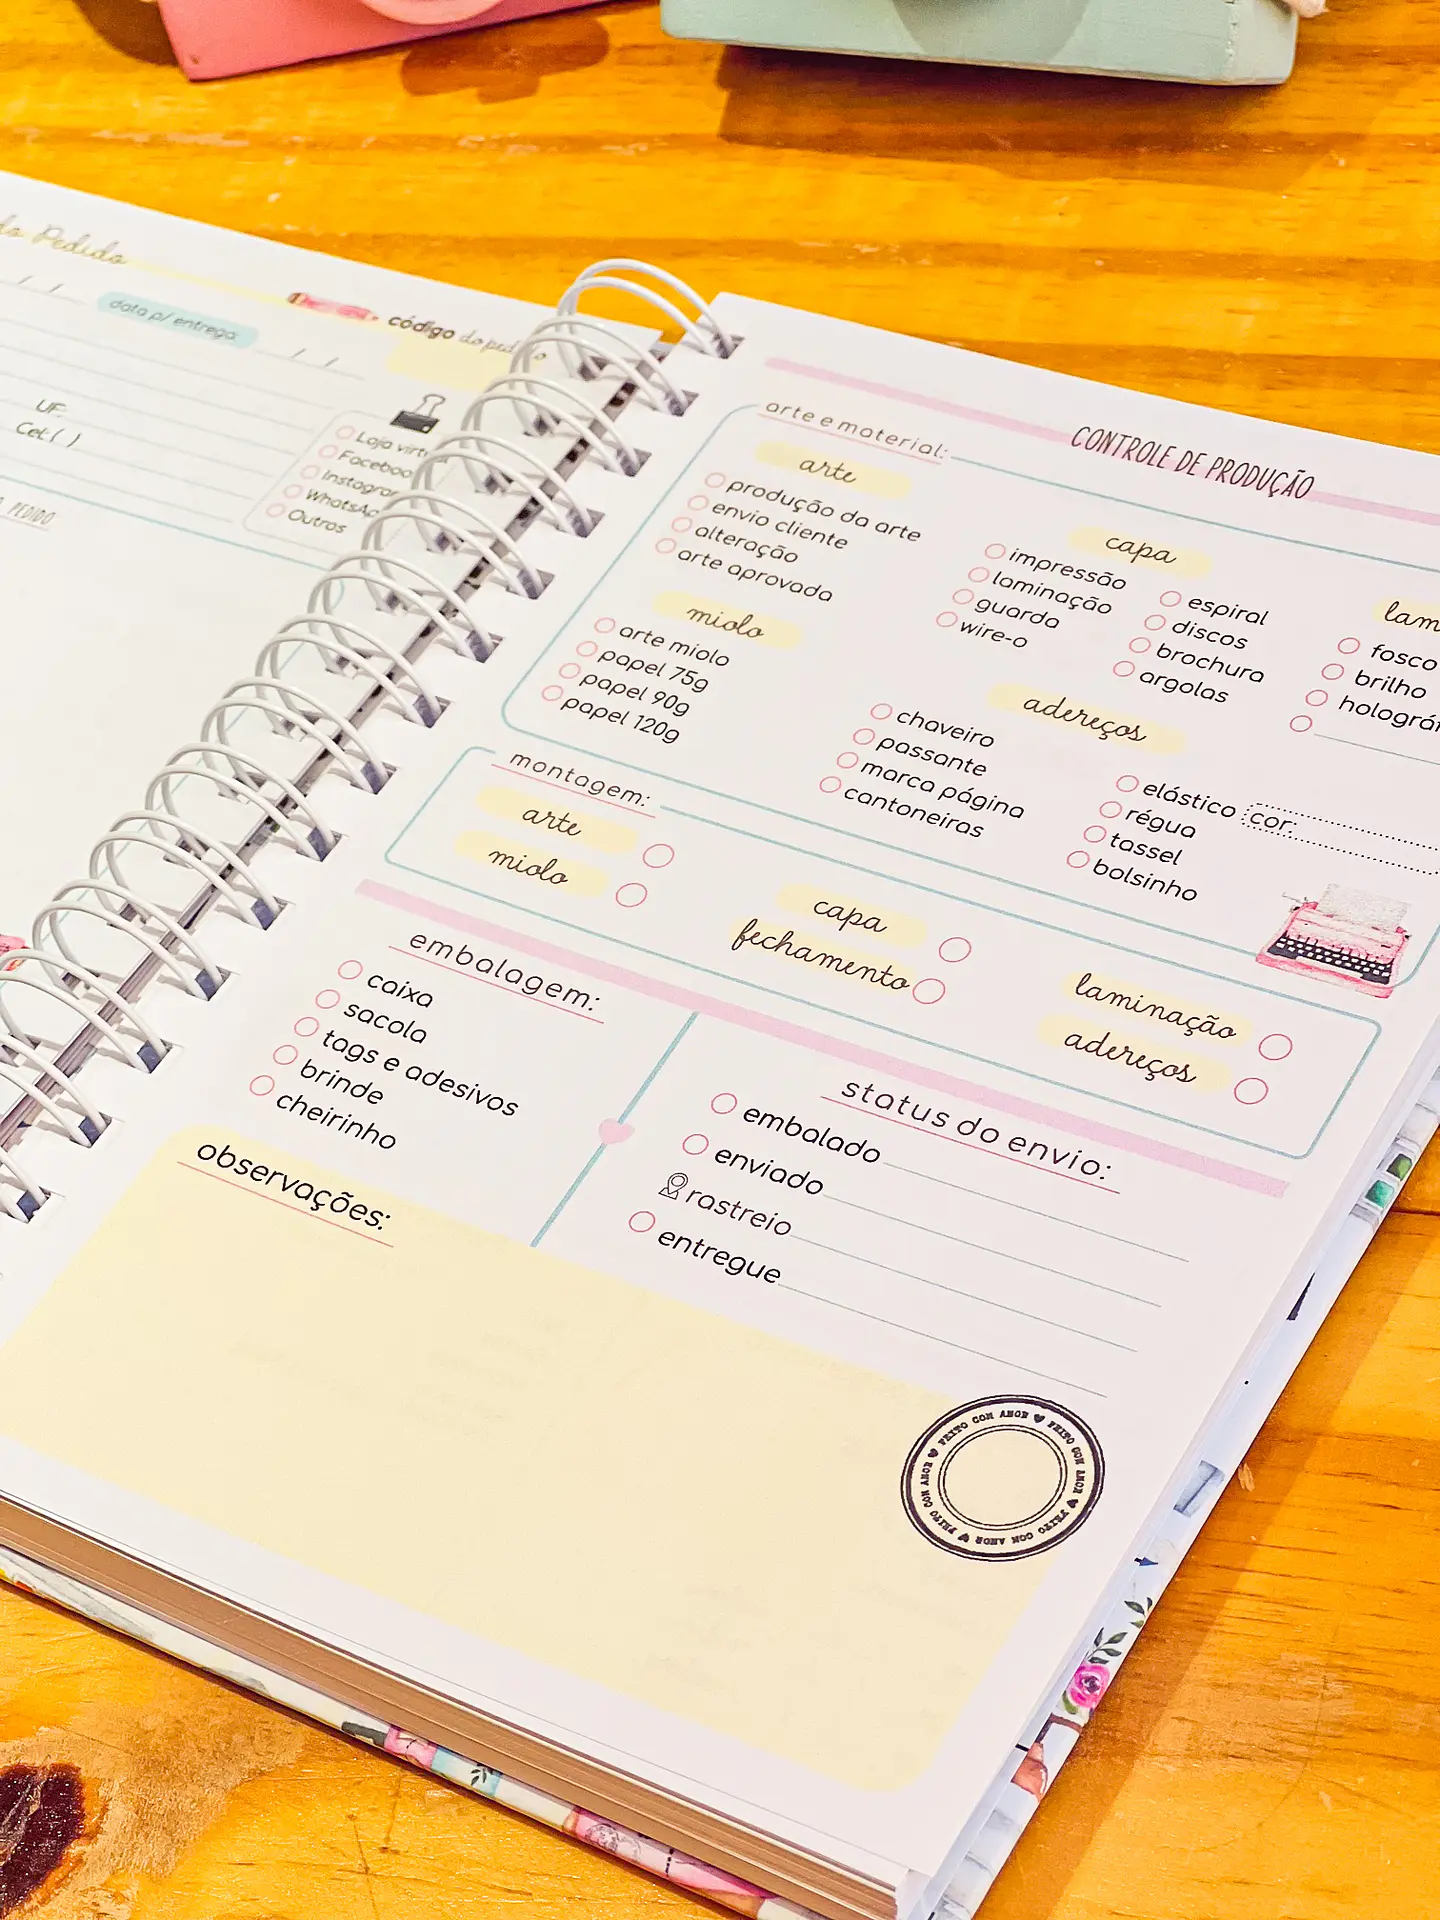 do Pedido
/ /
data p/ entrega
/ /
código do pedido
UF:
Cel: ( )
Loja
Facebook
Instagram
WhatsApp
Outros
PEDIDO
CONTROLE DE PRODUÇÃO
arte e material:
arte
produção da arte
envio cliente
alteração
arte aprovada
miolo
arte miolo
papel 75g
papel 90g
papel 120g
capa
impressão
laminação
guarda
wire-o
espiral
discos
brochura
argolas
lam
fosco
brilho
hologrāf
adereços
chaveiro
passante
marca página
cantoneiras
elástico cor:
régua
tassel
bolsinho
montagem:
arte
miolo
capa
fechamento
laminação
adereços
embalagem:
caixa
sacola
tags e adesivos
brinde
cheirinho
status do envio:
embalado
enviado
rastreio
entregue
observações:
FEITO COM AMOR ♥ FEITO COM AMOR ♥ FEITO COM AMOR ♥ FEITO COM AMOR ♥